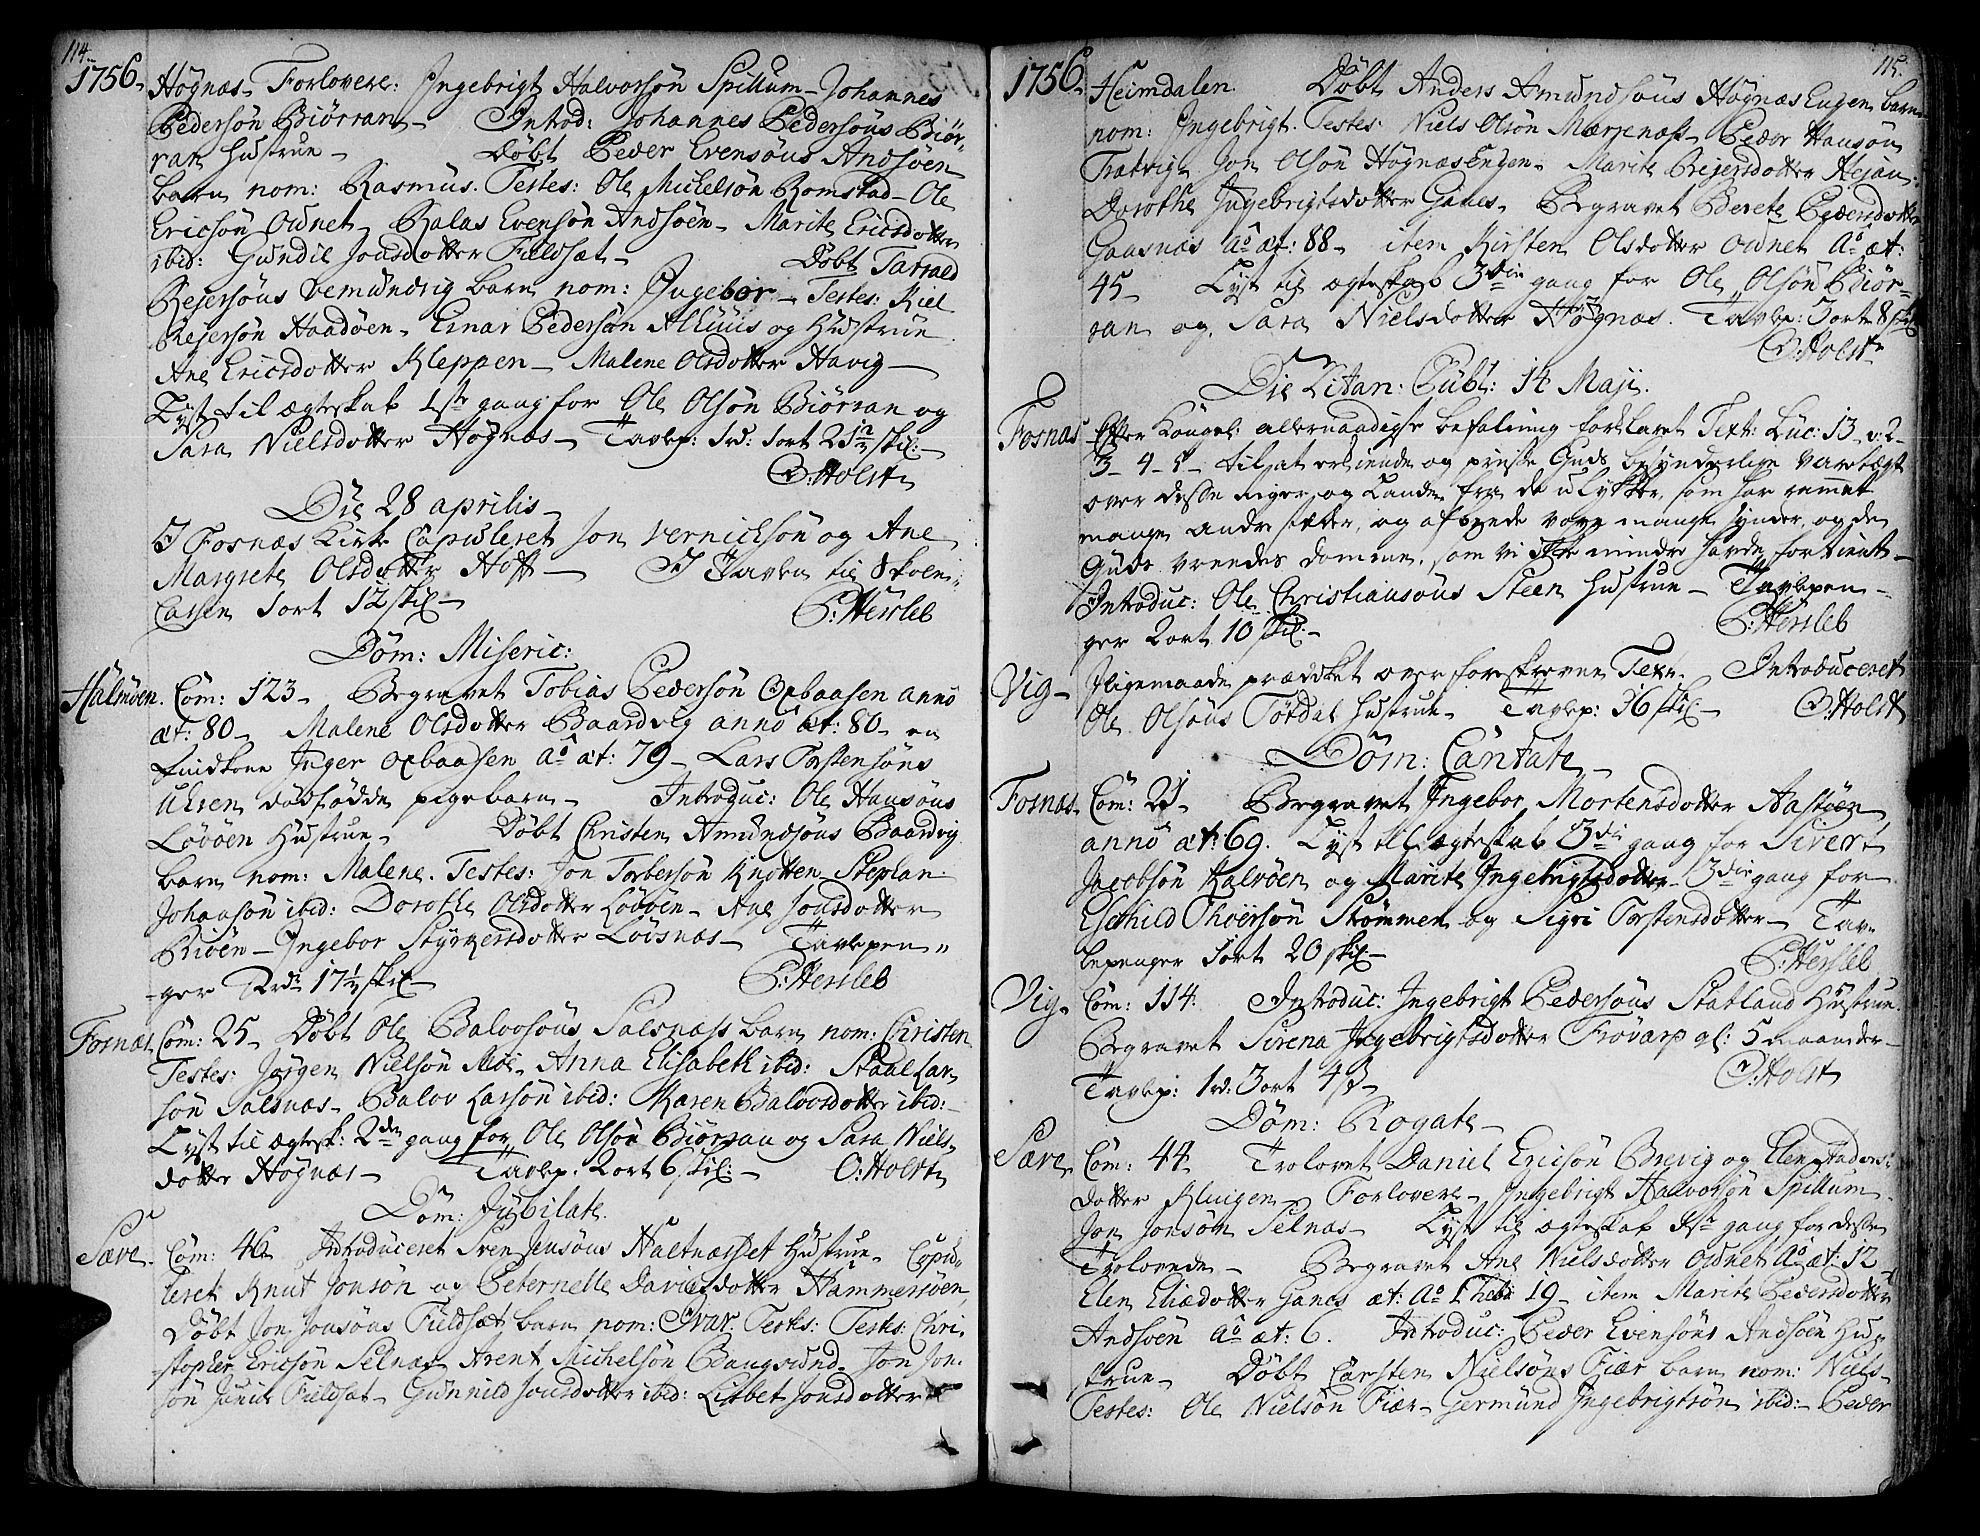 114.
1756.
Høgnæs. Forlovere: Ingebrigt Halvorsøn Spillum - Johannes
Pedersøn Biørran - Introd: Johannes Pedersøns Biør-
ran Hustrue - Døbt Peder Evensøns Andsøen
barn nom: Rasmus. Testes: Ole Michelsøn Romstad - Ole
Ericsøn Ødnet - Halas Evensøn Andsøen - Marite Ericsdotter
ibid: Gundil Jonsdotter Fieldsæt - Døbt Tarrald
Rejersøns bemundvig barn nom: Ingebor - Testes: Kiel
Rejersøn Haadøen - Einar Pedersøn Alhuus og Hustrue
Ane Ericsdotter Kleppen - Malene Olsdotter Havig -
Lyst til ægteskab 1ste gang for Ole Olsøn Biørran og
Sara Nielsdotter Høgnæs - Tavlep: 1rd: 1ort 21½ skil: -
O: Holst
Die 28 aprilis -
I Fosnæs Kirke Copuleret Jon Vernichsøn og Ane
Margrete Olsdotter Hoff - I Tavlen til Skole
Casen 1ort 12 skil -
P: Hersleb
Dom: Miseric:
Halmøen. Com: 123 - Begravet Tobias Pedersøn Oxbaasen anno
æt: 80 - Malene Olsdotter Baardvig anno æt: 80 - en
findkone Inger Oxbaasen ao æt: 79 - Lars Torstensøns
Uhren dødfødde pigebarn - Introduc: Ole Hansøns
Løvøen Hustrue - Døbt Christen Amundsøns Baardvig
barn nom: Malene. Testes: Jon Torbersøn Knotten - Stephan
Johansøn ibid: Dorothe Olsdotter Løvøen - Ane Jonsdotter
Briøen - Ingebor Styrkersdotter Løvsnæs - Tavlepen-
ger 2rd: 17½ skil -
P: Hersleb
Fosnæs. Com: 25 - Døbt Ole Balvorsøns Salsnæss barn nom: Christen
Testes: Jørgen Nielsøn Moe - Anna Elisabeth ibid: Staal Lar
søn Salsnæs - Balov Larsøn ibid: Karen Balvorsdotter ibid: -
Lyst til ægtesk: 2den gang for Ole Olsøn Biørran og Sara Niels-
dotter Høgnæs - Tavlep: 2ort 6 skil: -
O: Holst
Dom: Jubilate.
Sævre. Com: 46 - Introduceret Sven Jensøns Haltnæsset Hustrue - Copu-
leret Knut Jonsøn og Peternelle Davidsdotter Hammersøen,
Døbt Jon Jonsøns Fieldsæt barn nom: Ivar. Testes: Testes: Chri-
stopher Ericsøn Selnæs - Arent Michelsøn Bangsund - Jon Jon-
søn junior Fieldsæt - Gunnild Jonsdotter ibid: Lisbet Jonsdotter
115.
1756.
Heimdalen. Døbt Anders Amundsøns Høgnæs Engen barn
nom: Ingebrigt. Testes: Niels Olsøn Merrenæss - Peder Hansøn
Tratvig - Jon Olsøn Høgnæs Engen - Marite Rejersdotter Hejan:
Dorothe Ingebrigtsdotter Ganes - Begravet Berete Pedersdotter
Gaasnæs ao æt: 88 - item Kirsten Olsdotter Ødnet ao æt:
45 - Lyst til ægteskab 3die gang for Ole Olsøn Biør-
ran og Sara Nielsdotter Høgnæs. Tavlep: 3ort 8 skil
O: Holst
Die Litan: Publ: 14 Maji.
Fosnæs Efter Kongel: allernaadigste befalning forklaret Text: Luc: 13 v: 2-
3 - 4 - 5 - til at erkiende og prise Guds besynderlige Varetægt
over disse Riger og Lande fra de ulykker, som har rammet
mange andre stæder, og afbede vore mange synder, og de
Guds vredes domme, som vi ikke mindre havde fortient -
Introduc: Ole Christiansøns Steen Hustrue - Tavlepen-
ger 2ort 10 skil: -
P: Hersleb
Vig - Iligemaade prædiket over foreskrevne Text. Introduceret
Ole Olsøns Tørdal Hustrue - Tavlep: 36 skil -
O: Holst
Dom: Cantate -
Fosnæs. Com: 21 - Begravet Ingebor Mortensdotter Aastøen
anno æt: 69. Lyst til ægteskab 3die gang for Sivert
Jacobsøn Kalvøen og Marite Ingebrigtsdotter - 3die gang for
Eschild Thoersøn Strømmen og Sigri Torstensdotter - Tav-
lepenger 1ort 20 skil -
P: Hersleb
Vig. Com: 114. Introduc: Ingebrigt Pedersøns Statland Hustrue.
Begravet Sirena Ingebrigtsdotter Frøvarp gl: 5 maaneder -
Tavlep: 1rd: 3ort 4 ß -
O: Holst
Dom: Rogate -
Sævre. Com: 44 Trolovet Daniel Ericsøn Brevig og Elen Anders-
dotter Klingen - Forlovere - Ingebrigt Halvorsøn Spillum
Jon Jonsøn Selnæs - Lyst til ægteskab 1ste gang for disse
Trolovede - Begravet Ane Nielsdotter Ødnet ao æt: 12
Elen Eliædotter Ganes æt: ao 1 hebd 19 - item Marite Pedersdotter
Andsøen ao æt: 6. Introduc: Peder Evensøns Andsøen Hu-
strue - Døbt Carsten Nielsøns Fiær barn nom: Niels -
Testes: Ole Nielsøn Fiær - Germund Ingebrigtsøn ibid: - Peder